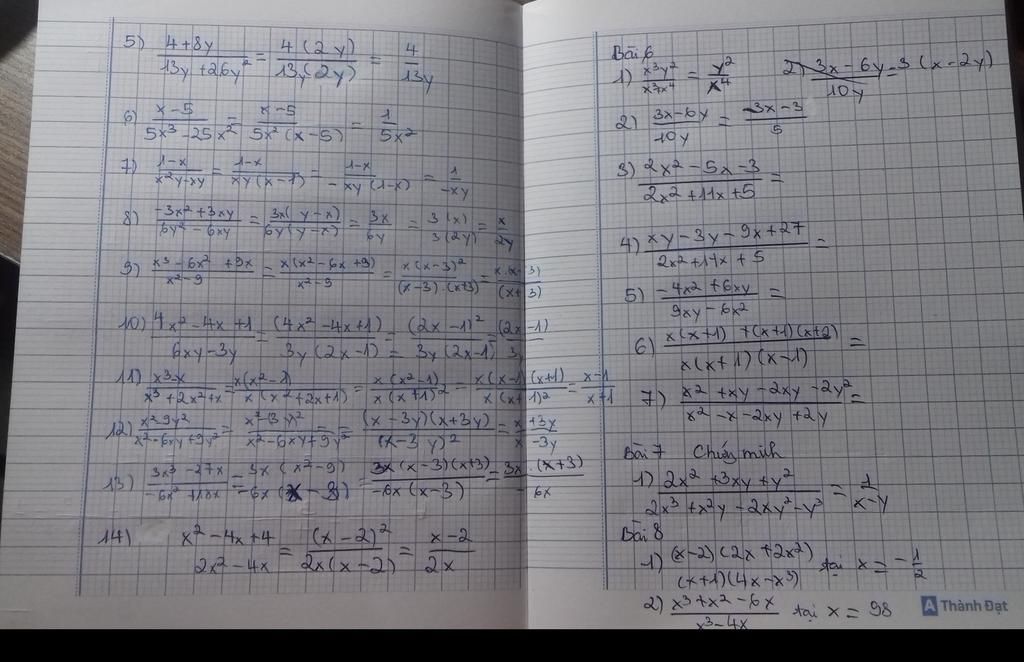 5) (4+8y)/(13y+26y²) = 4(2y)/13y(2y) = 4/13y
6) (x-5)/(5x³-25x²) = (x-5)/5x²(x-5) = 1/5x²
7) (1-x)/(x²y-xy) = (1-x)/xy(x-1) = (1-x)/-xy(1-x) = 1/-xy
8) (-3x²+3xy)/(6y²-6xy) = 3x(y-x)/6y(y-x) = 3x/6y = 3(x)/3(2y) = x/2y
9) (x³-6x²+9x)/(x²-9) = x(x²-6x+9)/(x²-9) = x(x-3)²/(x-3).(x+3) = x.(x-3)/(x+3)
10) (4x²-4x+1)/(6xy-3y) = (4x²-4x+1)/3y(2x-1) = (2x-1)²/3y(2x-1) = (2x-1)/3y
11) (x³-x)/(x³+2x²+x) = x(x²-1)/x(x²+2x+1) = x(x²-1)/x(x+1)² = x(x-1)(x+1)/x(x+1)² = (x-1)/(x+1)
12) (x²9y²)/(x²-6xy+9y²) = /(x²-6xy+9y²) = (x-3y)(x+3y)/(x-3y)² = (x+3y)/(x-3y)
13) (3x³-27x)/(-6x²+18x) = 3x(x²-9)/-6x(x-3) = 3x(x-3)(x+3)/-6x(x-3) = 3x.(x+3)/-6x
14) (x²-4x+4)/(2x²-4x) = (x-2)²/2x(x-2) = (x-2)/2x
Bài 6
1) x³y²/x³x⁴ = y²/x⁴ 2) (3x-6y)/10y = 3(x-2y)
2) (3x-6y)/10y = (3x-3)/5
3) (2x²-5x-3)/(2x²+11x+5) =
4) (xy-3y-9x+27)/(2x²+11x+5) =
5) (-4x²+6xy)/(9xy-6x²) =
6) (x(x+1)+(x+1)(x+2))/x(x+1)(x-1) =
7) (x²+xy-2xy-2y²)/(x²-x-2xy+2y) =
Bài 7 Chứng minh
1) (2x²+3xy+y²)/(2x³+x²y-2xy²-y³) = 1/(x-y)
Bài 8
1) (x-2)(2x+2x²)/(x+1)(4x-x³) tại x = -1/2
2) (x³+x²-6x)/(x³-4x) tại x = 98
A Thành Đạt